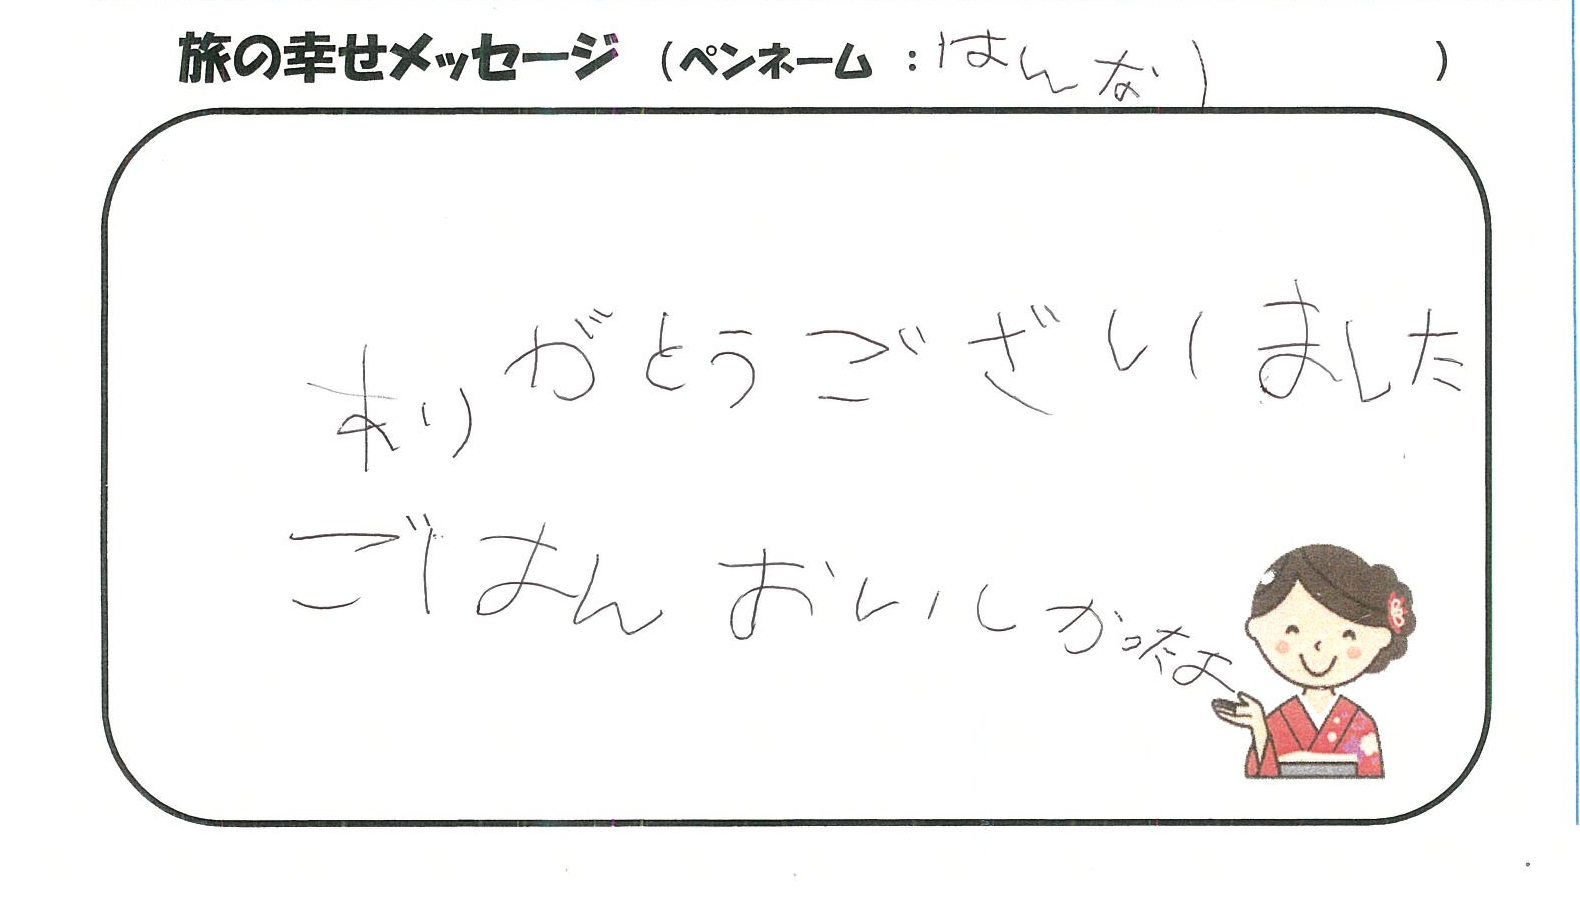 旅の幸せメッセージ（ペンネーム：はんな）
ありがとうございました
ごはんおいしかったよ